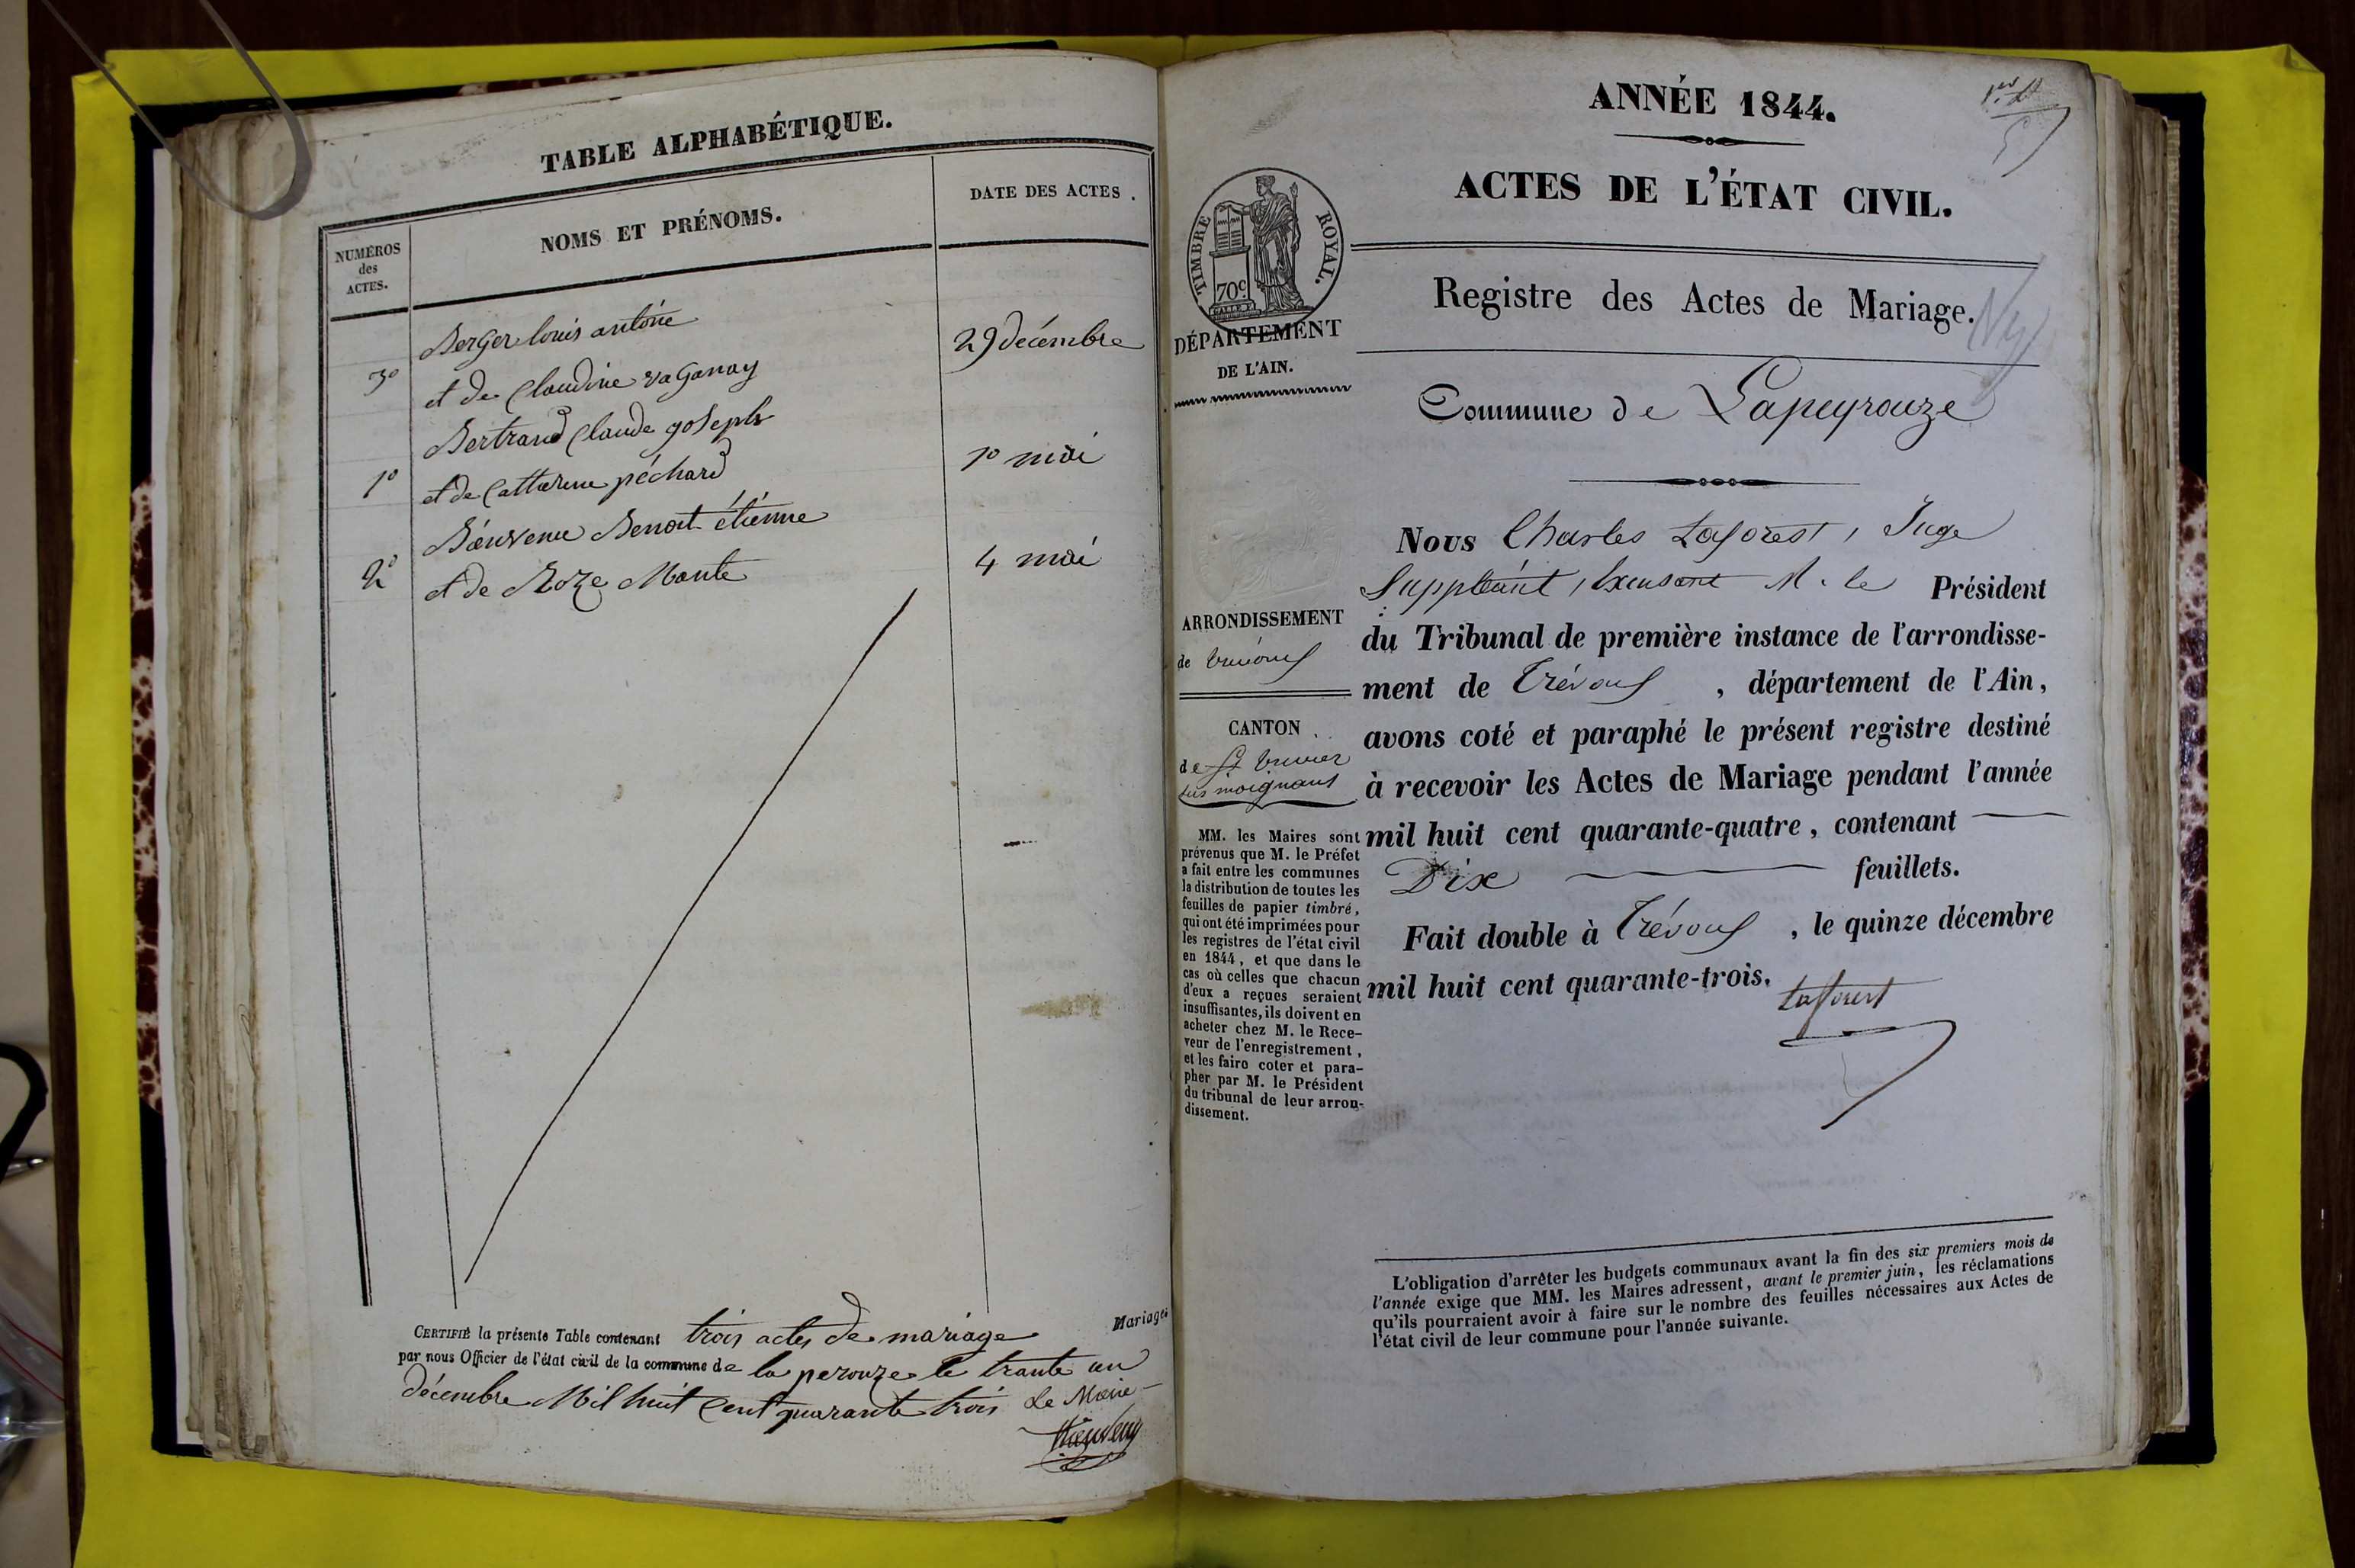 TABLE ALPHABÉTIQUE.
NUMÉROS
des
ACTES.
NOMS ET PRÉNOMS.
DATE DES ACTES.
Berger louis antoine
3º et de Claudine vaganay 29 décembre
Bertrand Claude goseph
1º et de Catterine péchard 1º mai
Bienvenu Benoit étienne
2º et de Roze Monte 4 mai
CERTIFIÉ la présente Table contenant trois actes de mariage
Mariages
par nous Officier de l'état civil de la commune de la perouze le trante un
décembre Mil huit Cent quarante trois Le Maire
ANNÉE 1844.
ACTES DE L'ÉTAT CIVIL.
TIMBRE ROYAL.
70c
DÉPARTEMENT
DE L'AIN.
Registre des Actes de Mariage.
Commune de Lapeyrouze
ARRONDISSEMENT
de Trévoux
CANTON
de St Trivier
sur moignans
MM. les Maires sont
prévenus que M. le Préfet
a fait entre les communes
la distribution de toutes les
feuilles de papier timbré,
qui ont été imprimées pour
les registres de l'état civil
en 1844, et que dans le
cas où celles que chacun
d'eux a reçues seraient
insuffisantes, ils doivent en
acheter chez M. le Rece-
veur de l'enregistrement,
et les faire coter et para-
pher par M. le Président
du tribunal de leur arron-
dissement.
Nous Charles Laforest, Juge
Suppléant, M. le Président
du Tribunal de première instance de l'arrondisse-
ment de Trévoux, département de l'Ain,
avons coté et paraphé le présent registre destiné
à recevoir les Actes de Mariage pendant l'année
mil huit cent quarante-quatre, contenant
Dix feuillets.
Fait double à Trévoux, le quinze décembre
mil huit cent quarante-trois.
Laforest
L'obligation d'arrêter les budgets communaux avant la fin des six premiers mois de
l'année exige que MM. les Maires adressent, avant le premier juin, les réclamations
qu'ils pourraient avoir à faire sur le nombre des feuilles nécessaires aux Actes de
l'état civil de leur commune pour l'année suivante.